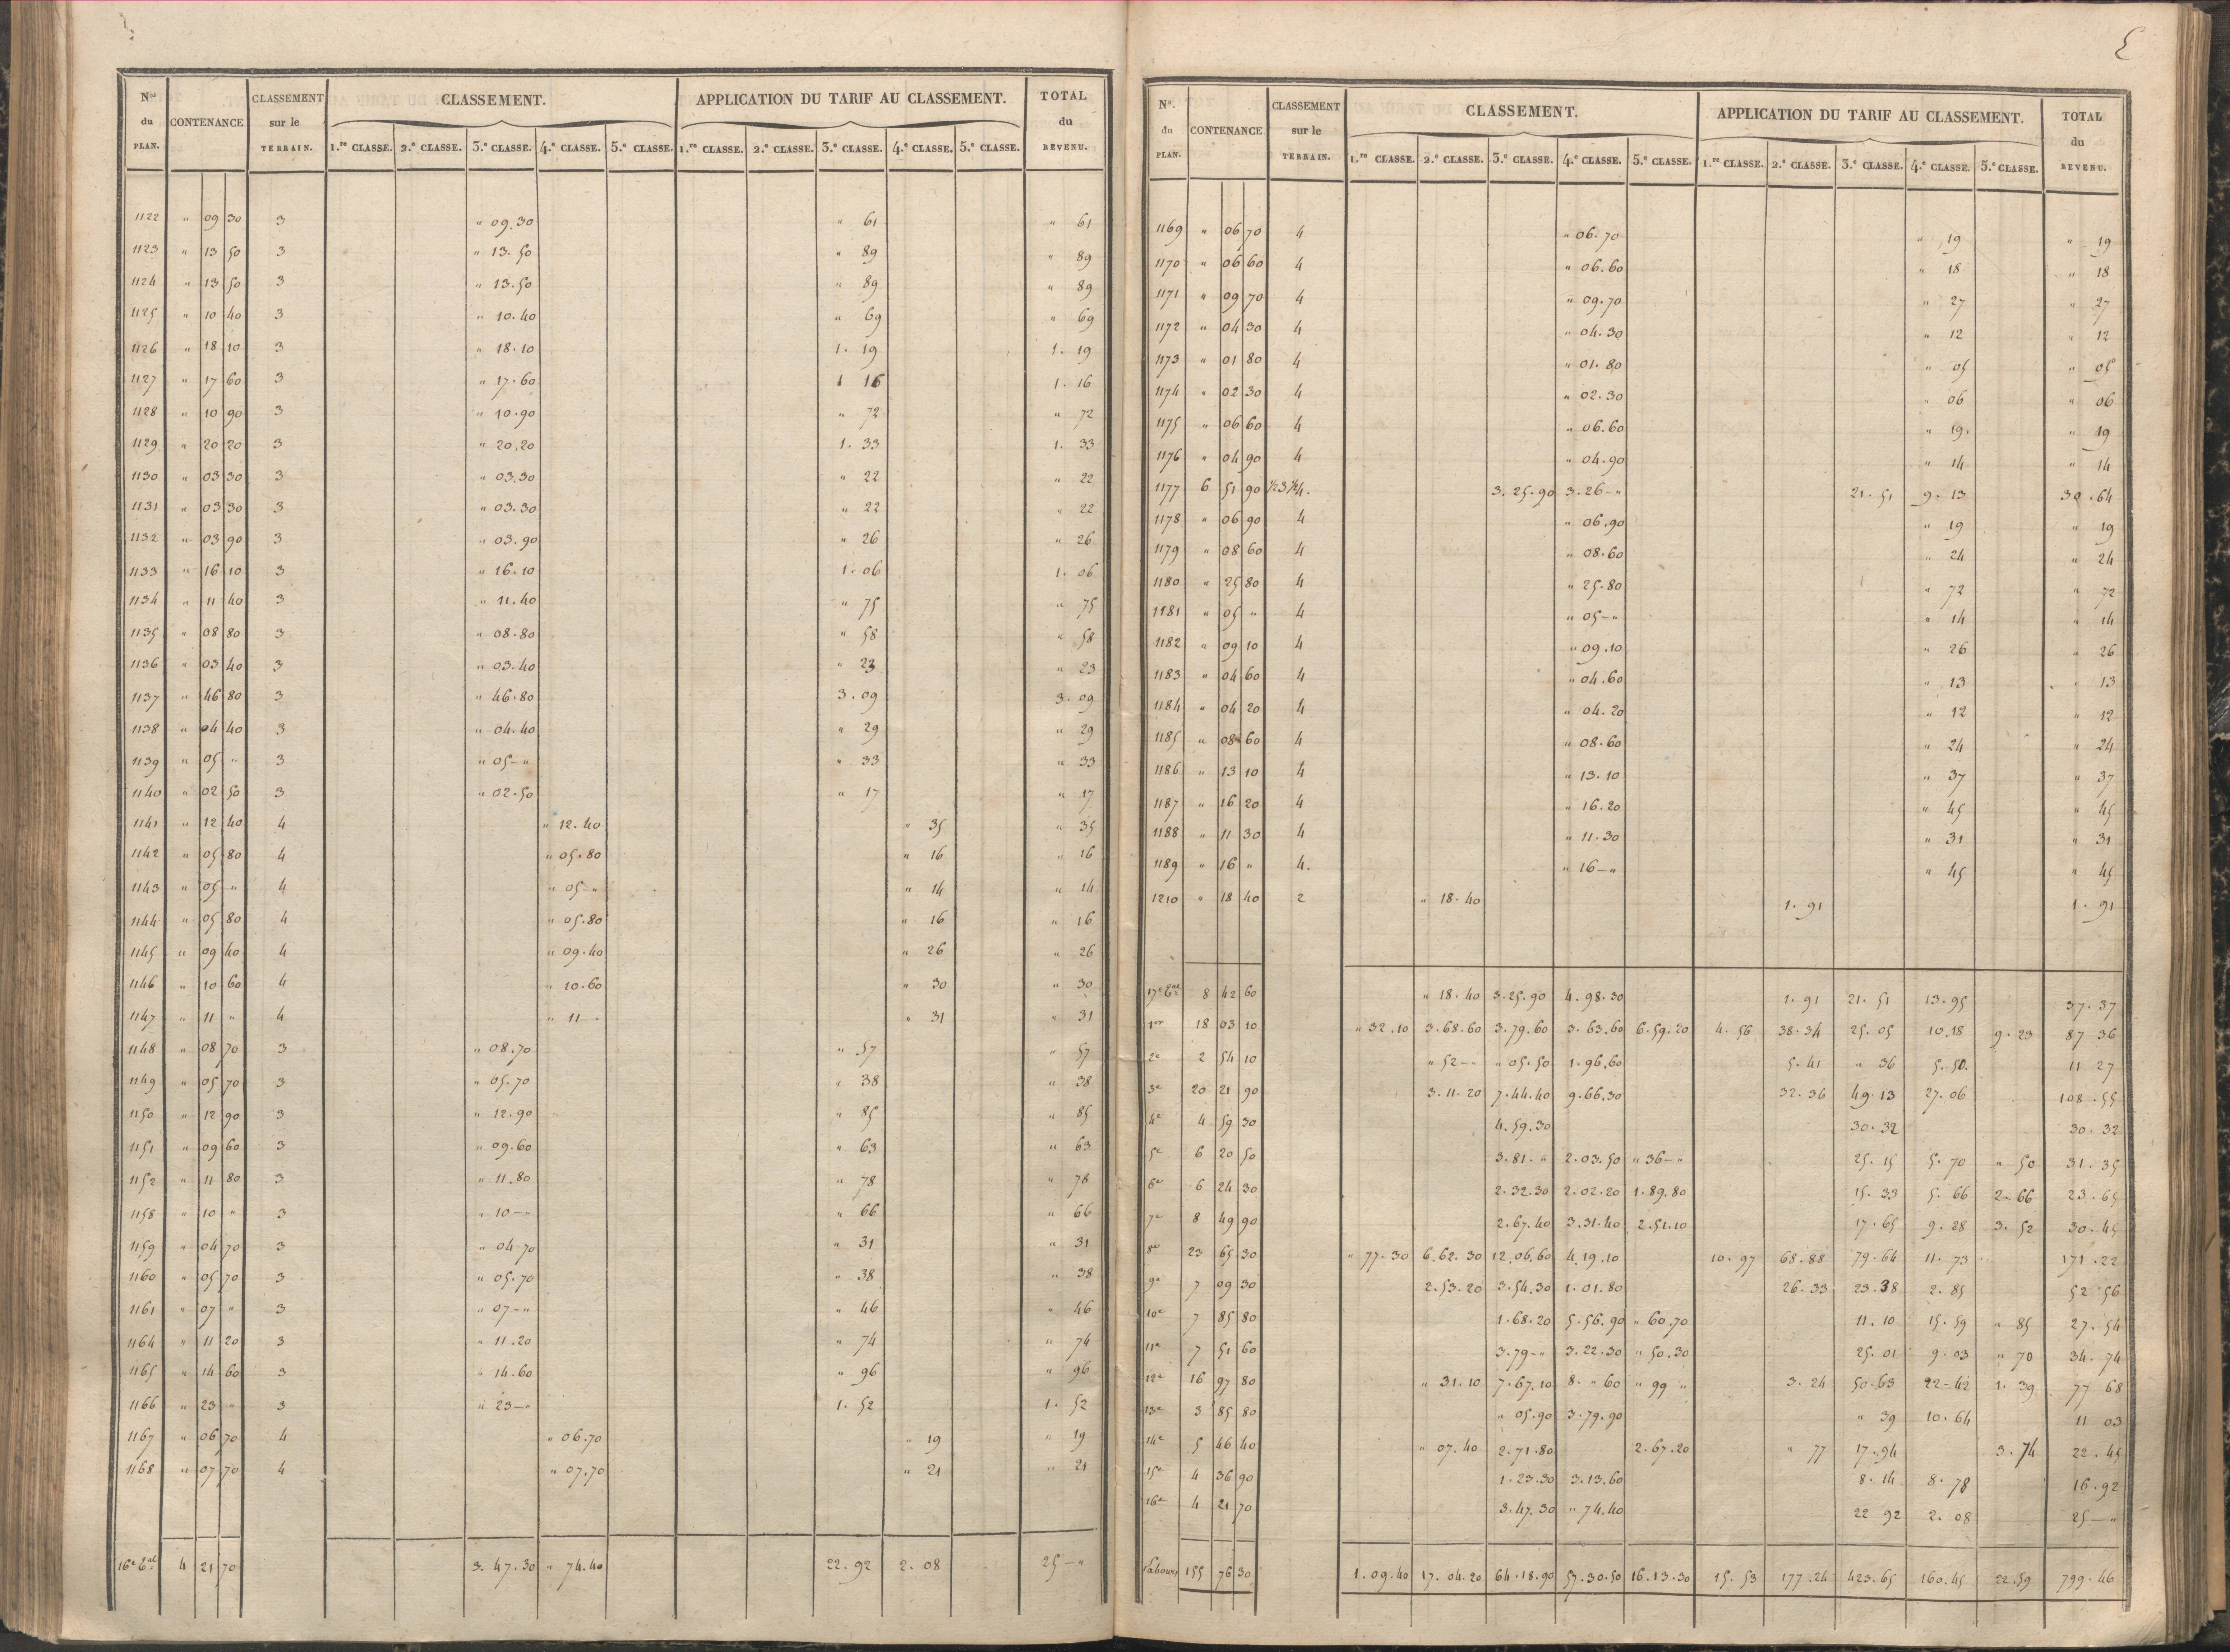 Nos du PLAN. CONTENANCE CLASSEMENT sur le TERRAIN. CLASSEMENT. APPLICATION DU TARIF AU CLASSEMENT. TOTAL du REVENU.
1.re CLASSE. 2.e CLASSE. 3.e CLASSE. 4.e CLASSE. 5.e CLASSE. 1.re CLASSE. 2.e CLASSE. 3.e CLASSE. 4.e CLASSE. 5.e CLASSE.
1122 " 09 30 3 " 09.30 " 61 " 61
1123 " 13 50 3 " 13.50 " 89 " 89
1124 " 13 50 3 " 13.50 " 89 " 89
1125 " 10 40 3 " 10.40 " 69 " 69
1126 " 18 10 3 " 18.10 1. 19 1. 19
1127 " 17 60 3 " 17.60 1 16 1. 16
1128 " 10 90 3 " 10.90 " 72 " 72
1129 " 20 20 3 " 20.20 1. 33 1. 33
1130 " 03 30 3 " 03.30 " 22 " 22
1131 " 03 30 3 " 03.30 " 22 " 22
1132 " 03 90 3 " 03.90 " 26 " 26
1133 " 16 10 3 " 16.10 1. 06 1. 06
1134 " 11 40 3 " 11.40 " 75 " 75
1135 " 08 80 3 " 08.80 " 58 " 58
1136 " 03 40 3 " 03.40 " 23 " 23
1137 " 46 80 3 " 46.80 3. 09 3. 09
1138 " 04 40 3 " 04.40 " 29 " 29
1139 " 05 " 3 " 05-" " 33 " 33
1140 " 02 50 3 " 02.50 " 17 " 17
1141 " 12 40 4 " 12.40 " 35 " 35
1142 " 05 80 4 " 05.80 " 16 " 16
1143 " 05 " 4 " 05-" " 14 " 14
1144 " 05 80 4 " 05.80 " 16 " 16
1145 " 09 40 4 " 09.40 " 26 " 26
1146 " 10 60 4 " 10.60 " 30 " 30
1147 " 11 " 4 " 11-" " 31 " 31
1148 " 08 70 3 " 08.70 " 57 " 57
1149 " 05 70 3 " 05.70 " 38 " 38
1150 " 12 90 3 " 12.90 " 85 " 85
1151 " 09 60 3 " 09.60 " 63 " 63
1152 " 11 80 3 " 11.80 " 78 " 78
1158 " 10 " 3 " 10-" " 66 " 66
1159 " 04 70 3 " 04.70 " 31 " 31
1160 " 05 70 3 " 05.70 " 38 " 38
1161 " 07 " 3 " 07-" " 46 " 46
1164 " 11 20 3 " 11.20 " 74 " 74
1165 " 14 60 3 " 14.60 " 96 " 96
1166 " 23 " 3 " 23-" 1. 52 1. 52
1167 " 06 70 4 " 06.70 " 19 " 19
1168 " 07 70 4 " 07.70 " 21 " 21
16e 4 21 70 3. 47.30 " 74.40 22. 92 2. 08 25-"
No. du PLAN. CONTENANCE CLASSEMENT sur le TERRAIN. CLASSEMENT. APPLICATION DU TARIF AU CLASSEMENT. TOTAL du REVENU.
1.re CLASSE. 2.e CLASSE. 3.e CLASSE. 4.e CLASSE. 5.e CLASSE. 1.re CLASSE. 2.e CLASSE. 3.e CLASSE. 4.e CLASSE. 5.e CLASSE.
1169 " 06 70 4 " 06.70 " 19 " 19
1170 " 06 60 4 " 06.60 " 18 " 18
1171 " 09 70 4 " 09.70 " 27 " 27
1172 " 04 30 4 " 04.30 " 12 " 12
1173 " 01 80 4 " 01.80 " 05 " 05
1174 " 02 30 4 " 02.30 " 06 " 06
1175 " 06 60 4 " 06.60 " 19. " 19
1176 " 04 90 4 " 04.90 " 14 " 14
1177 6 51 90 1/2 3 1/2 4. 3. 25.90 3. 26-" 21. 51 9. 13 30. 64
1178 " 06 90 4 " 06.90 " 19 " 19
1179 " 08 60 4 " 08.60 " 24 " 24
1180 " 25 80 4 " 25.80 " 72 " 72
1181 " 05 " 4 " 05-" " 14 " 14
1182 " 09 10 4 " 09.10 " 26 " 26
1183 " 04 60 4 " 04.60 " 13 " 13
1184 " 04 20 4 " 04.20 " 12 " 12
1185 " 08 60 4 " 08.60 " 24 " 24
1186 " 13 10 4 " 13.10 " 37 " 37
1187 " 16 20 4 " 16.20 " 45 " 45
1188 " 11 30 4 " 11.30 " 31 " 31
1189 " 16 " 4. " 16-" " 45 " 45
1210 " 18 40 2 " 18.40 1. 91 1. 91
17e 8 42 60 " 18.40 3.25.90 4.98.30 1. 91 21. 51 13. 95 37. 37
1er 18 03 10 " 32.10 3.68.60 3.79.60 3.63.60 6.59.20 4. 56 38. 34 25. 05 10.18 9. 23 87 36
2e 2 54 10 " 52-" " 05.50 1.96.60 5. 41 " 36 5. 50. 11 27
3e 20 21 90 3.11.20 7.44.40 9.66.30 32. 36 49. 13 27. 06 108. 55
4e 4 59 30 4.59.30 30. 32 30. 32
5e 6 20 50 3.81." 2.03.50 " 36-" 25. 15 5. 70 " 50 31. 35
6e 6 24 30 2.32.30 2.02.20 1.89.80 15. 33 5. 66 2. 66 23. 65
7e 8 49 90 2.67.40 3.31.40 2.51.10 17. 65 9. 28 3. 52 30. 45
8e 23 65 30 " 77.30 6.62.30 12.06.60 4.19.10 10. 97 68. 88 79. 64 11. 73 171. 22
9e 7 09 30 2.53.20 3.54.30 1.01.80 26. 33 23. 38 2. 85 52 56
10e 7 85 80 1.68.20 5.56.90 " 60.70 11. 10 15. 59 " 85 27. 54
11e 7 51 60 3.79-" 3.22.30 " 50.30 25. 01 9. 03 " 70 34. 74
12e 16 97 80 " 31.10 7.67.10 8. " 60 " 99 " 3. 24 50-63 22-42 1. 39 77 68
13e 3 85 80 " 05.90 3.79.90 " 39 10. 64 11 03
14e 5 46 40 " 07.40 2.71.80 2.67.20 " 77 17. 94 3. 74 22. 45
15e 4 36 90 1.23.30 3.13.60 8. 14 8. 78 16. 92
16e 4 21 70 3.47.30 " 74.40 22 92 2. 08 25-"
Labours 155 76 30 1.09.40 17.04.20 64.18.90 57.30.50 16.13.30 15. 53 177. 24 423. 65 160. 45 22.59 799. 46